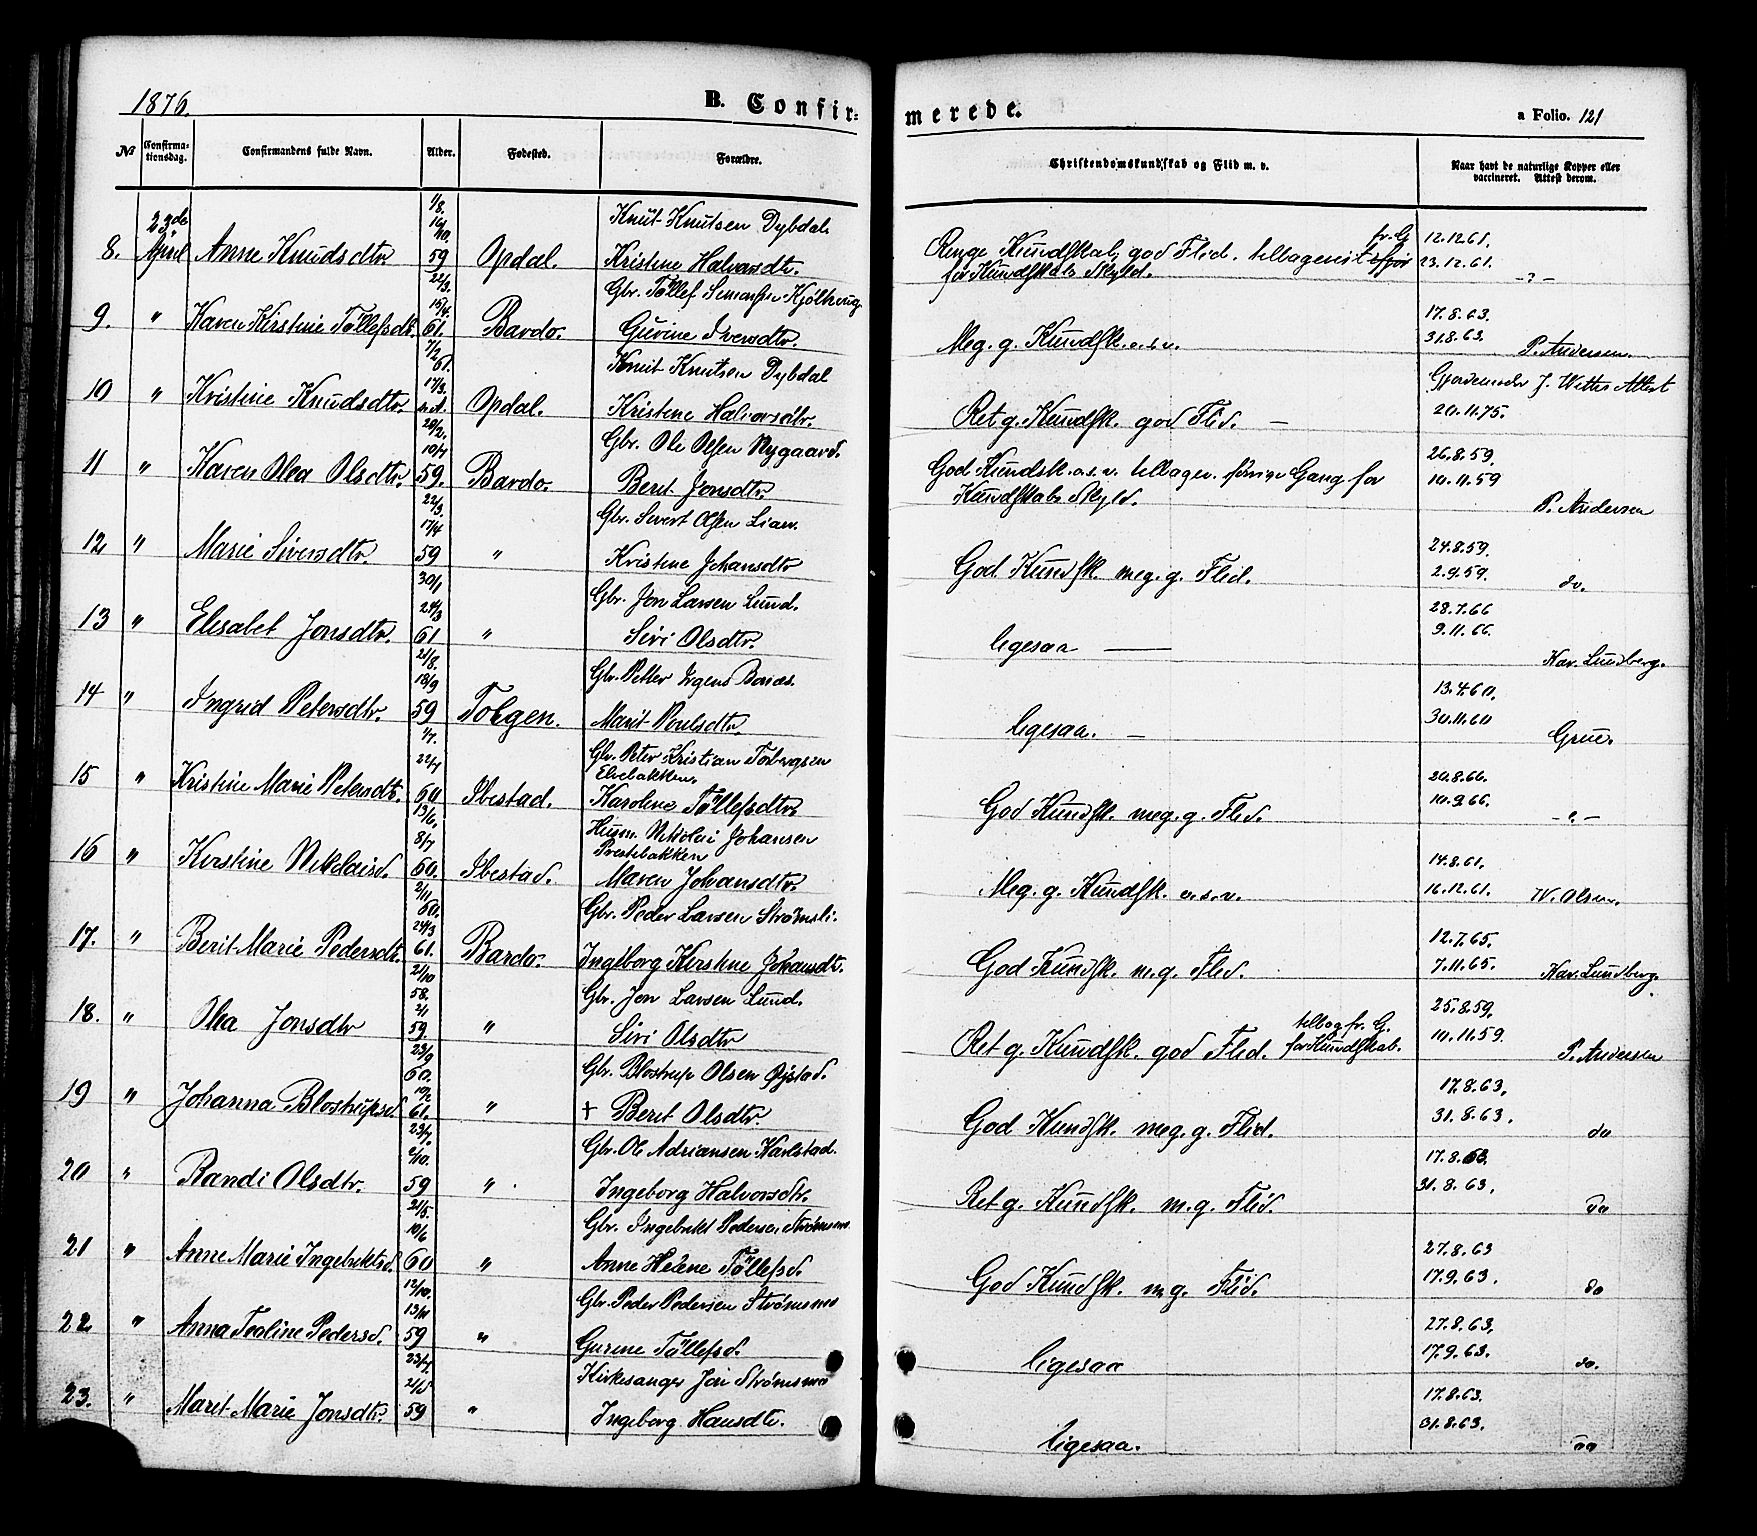 1876.
B. Confir-
merede.
a Folio. 121
No
Confirma-
tionsdag.
Confirmandens fulde Navn.
Alder.
Fødested.
Forældre.
Christendomskundskab og Flid m. v.
Naar havt de naturlige Kopper eller
vaccineret. Attest derom.
1/8.
23de 16/10. Knut Knutsen Dybdal.
8. April Anne Knudsdtr. 59 Opdal. Kristine Halvorsdtr. Ringe Kundskab, god Flid. tilbagevist fr. G. 12.12.61.
for Kundskabs Skyld. 23.12.61. -"-
22/3. Gbr. Tøllef Simonsen Kjølhaug
15/4. 17.8.63.
9. " Karen Kirstine Tøllefsdtr. 61. Bardo. Gurine Iversdtr. Meg. g. Kundsk. o.s.v. 31.8.63. P. Andersen.
7/2 61. Knut Knutsen Dybdal
17/3. Gjordemoder J. Wettes Attest
10 " Kristine Knudsdtr. Opdal. Kristine Halvorsdtr. Ret g. Kundsk. god Flid. — 20.11.75.
20/2. Gbr. Ole Olsen Nygaard.
10/4 26.8.59.
11 " Karen Olea Olsdtr. 59. Bardo. Berit Jonsdtr. God Kundsk. o.s.v. tilbagev. forrige Gang for 10.11.59
Kundskabs Skyld. P. Andersen
22/3. Gbr. Sivert Olsen Lian.
17/4 24.8.59.
12 " Marie Siversdtr. 59 " Kristine Johansdtr God Kundsk. meg. g. Flid. 2.9.59. do.
30/1 Gbr. Jon Larsen Lund.
24/3 28.7.66
13 " Elisabet Jonsdtr. 61 " Siri Olsdtr. ligesaa — 9.11.66. Hav. Lundberg.
21/8. Gbr. Petter Bonæs.
18/9 13.4.60.
14 " Ingrid Petersdtr. 59 Tolgen. Marit Poulsdtr. ligesaa. — 30.11.60 Grue.
1/7. Gbr. Peter Kristian Torbergsen
22/7 Elvebakken. 20.8.66.
15 " Kristine Marie Petersdtr. 60 Ibestad. Karoline Tøllefsdtr. God Kundsk. meg. g. Flid. 10.9.66. -"-
13/6. Husm. Nikolai Johansen
8/7 Prestebakken 14.8.61.
16 " Kirstine Nikolaisd. 60. Ibestad. Maren Johansdtr. Meg. g. Kundsk. o.s.v. 16.12.61. W. Olsen.
2/11 60. Gbr. Peder Larsen Strømsli.
24/3 12.7.65.
17. " Berit Marie Pedersdtr. 61. Bardo. Ingeborg Kirstine Johansdt. God Kundsk. m.g. Flid. 7.11.65. Hav. Lundberg.
2/10 58. Gbr. Jon Larsen Lund.
2/1 25.8.59.
18. " Olea Jonsdtr 59. " Siri Olsdtr Ret g. Kundsk. god Flid. tilbag fr. G. for Kundskab. 10.11.59. P. Andersen
23/9 60. Gbr. Blostrup Olsen Øjstad.
17.8.63.
19 " Johanna Blostrupsd. 61. " + Berit Olsdtr. God Kundsk. meg. g. Flid. 31.8.63. do
23/7. Gbr. Ole Adriansen Karlstad.
17.8.63.
20 " Randi Olsdtr. 59 " Ingeborg Halvorsdtr. Ret g. Kundsk. m.g. Flid. 31.8.63. do
21/5. Gbr. Ingebrikt Pedersen Strømsmo
10/6 27.8.63
21 " Anne Marie Ingebriktsd. 60 " Anne Helene Tøllefsd. God Kundsk. m g. Flid. 17.9.63. do
12/10. Gbr. Peder Pedersen Strømsmo
13/11 27.8.63.
22 " Anna Teoline Pedersd. 59 " Gurine Tøllefsd. ligesaa 17.9.63. do.
23/4 Kirkesanger Jon Strømsmo
2/5 17.8.63.
23. " Maret Marie Jonsdtr. 59 " Ingeborg Hansdtr. ligesaa. 31.8.63. do